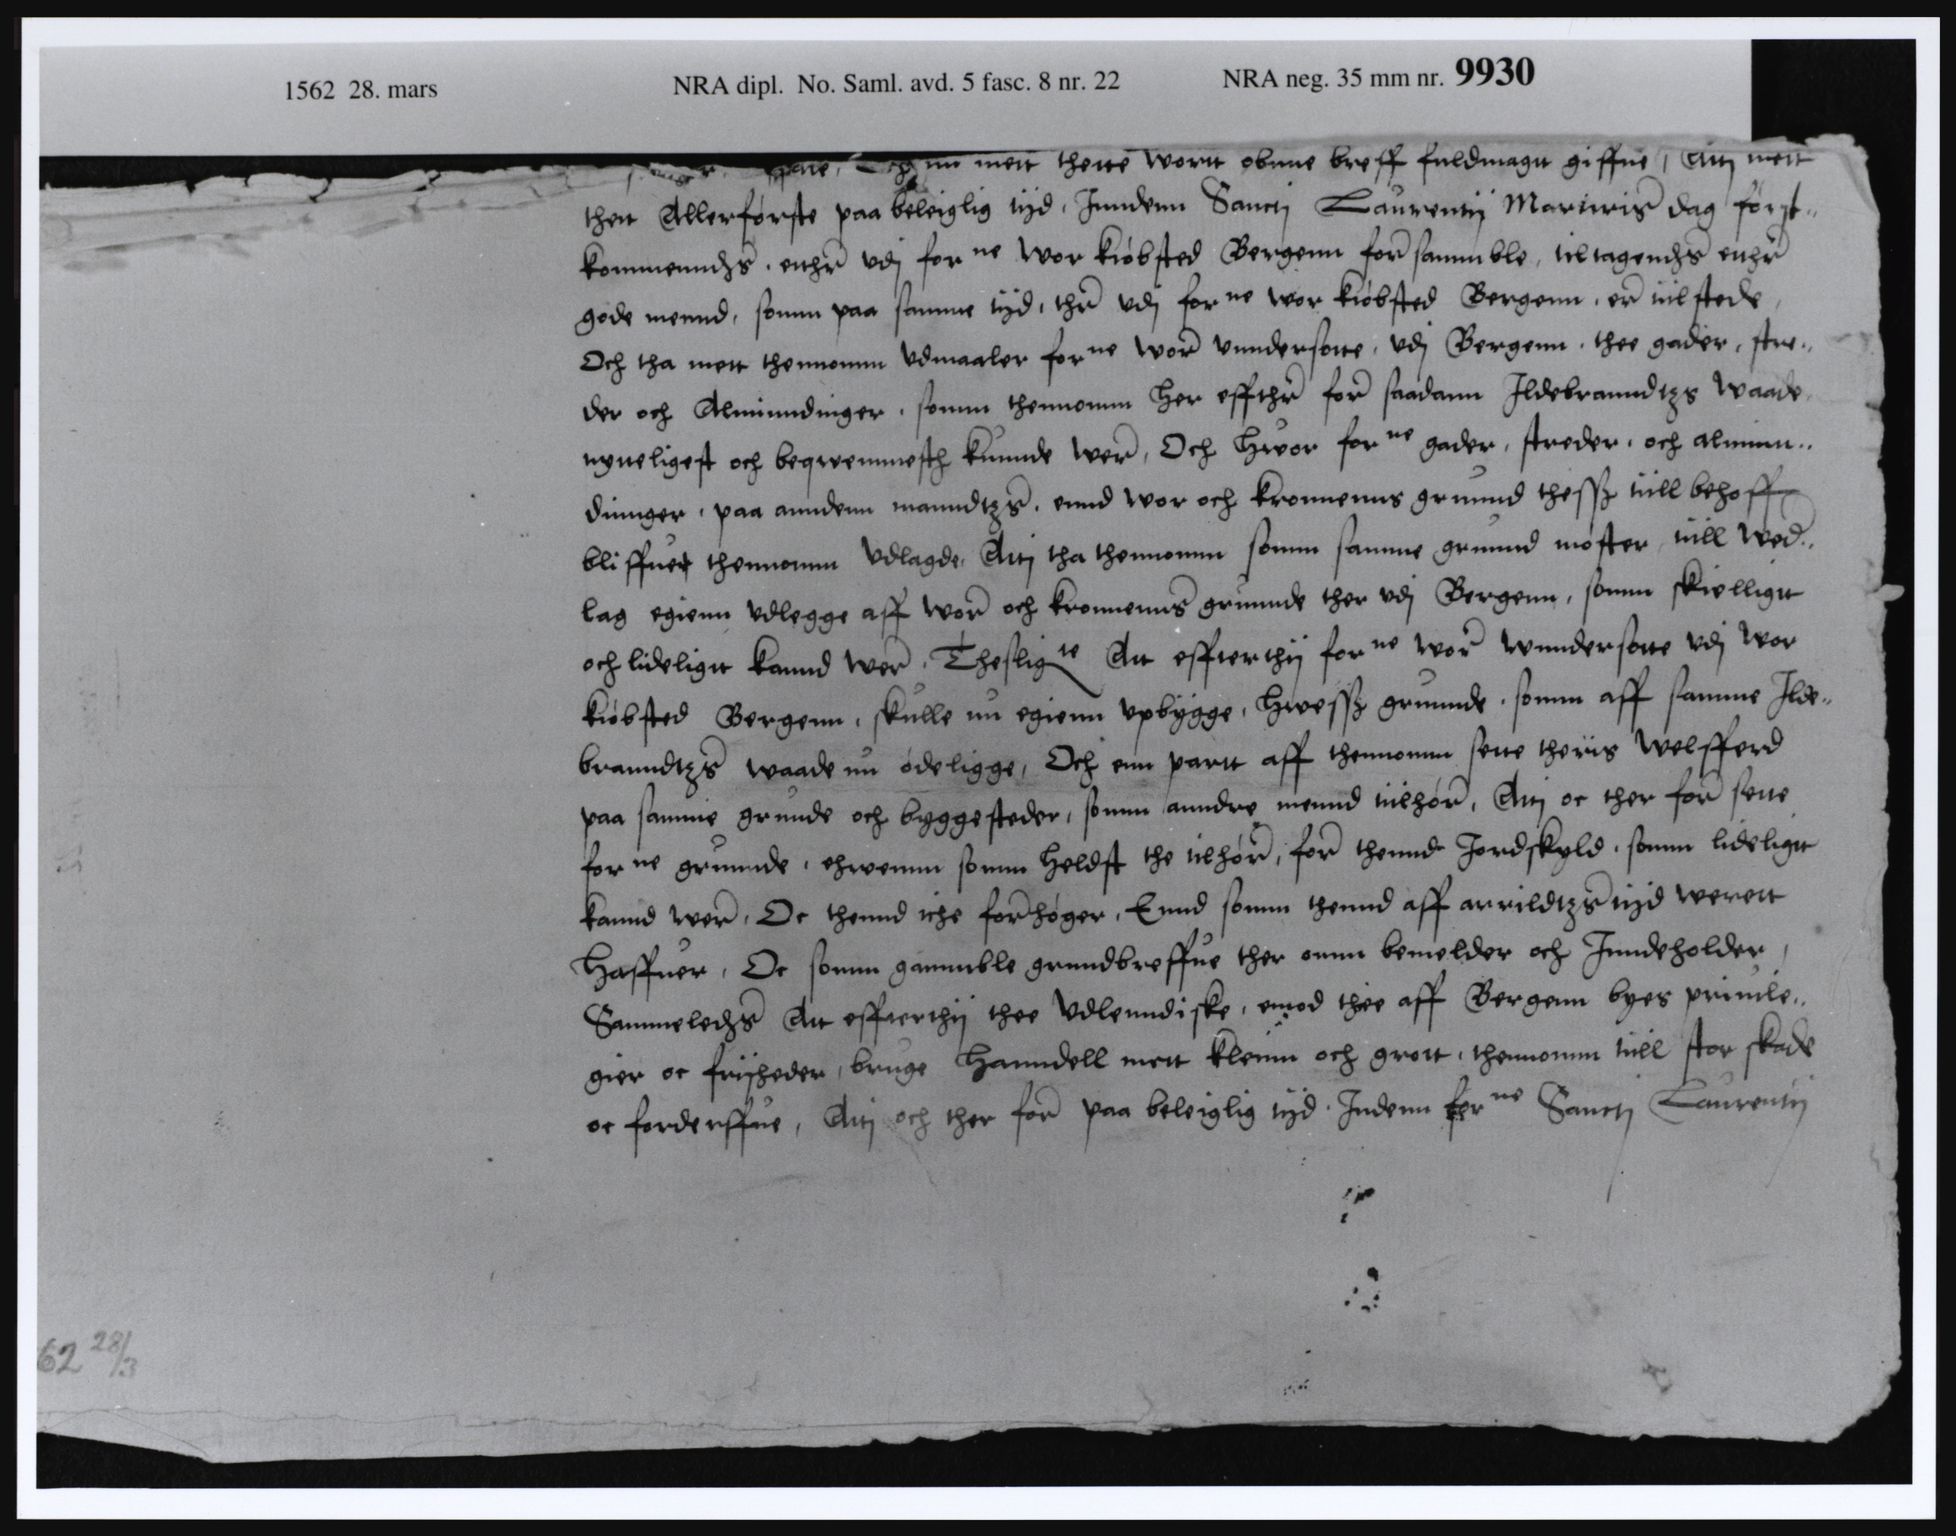 1562 28. mars NRA dipl. No. Saml. avd. 5 fasc. 8 nr. 22 NRA neg. 35 mm nr. 9930
nu mett thette wortt obnne breff fuldmagtt giffue, Atj mett
thett Allerførste paa beleiglig tijd, Inndenn Sanctj Laurentij Martiris dag først..
kommenndhs, ethr vdj for ne wor kiøbsted Bergenn for sammble, tiltagendhs ethr
gode mennd, somm paa samme tijd, thr vdj for ne wor kiøbsted Bergenn, er tiilstede,
Och tha mett thennomm vdmaaler for ne wor vnndersotte, vdj Bergenn, thee gader, stre..
der och Alminndinger, somm thennomm her effthr for saadann Ildebranndtzs waade,
nytteligest och beqwemmesth kunnde wer, Och hwor for ne gader, streder, och alminn..
dinnger, paa anndenn manndtzs, ennd wor och kronnenns grunnd thessz tiill behoff
bliffuer thennomm vdlagde, Atj tha thennomm somm samme grunnd møster, tiill wed..
lag egienn vdlegge aff wor och kronnenns grunnde ther vdj Bergenn, somm skielligtt
och lideligtt kannd wer, Theslig te Att effterthij for ne wor wnndersotte vdj wor
kiøbsted Bergenn, skulle nu egienn vpbygge, hwessz grunnde, somm aff samme Ilde..
branndtzs waade nu øde ligge, Och enn partt aff thennomm sette theris welfferd
paa samme grunde och byggesteder, somm anndre mennd tiilhør, Atj oc ther for sette
for ne grunnde, ehwemm somm heldst the tilhør, for thennd Jordskyld, somm lideligtt
kannd wer, Oc thennd iche forhøger, Ennd somm thennd aff arrildtzs tijd werett
haffuer, Oc somm gammble grundbreffue ther omm bemelder och Inndeholder,
Sammeledhs Att effterthij thee vdlenndiske, emod thee aff Bergenn byes priuile..
gier oc frijheder, bruge hanndell mett kleinn och grott, thennomm tiill stor skade
oc forderffue, Atj och ther for paa beleiglig tijd, Indenn for ne Sanctj Laurentij
62 28/3